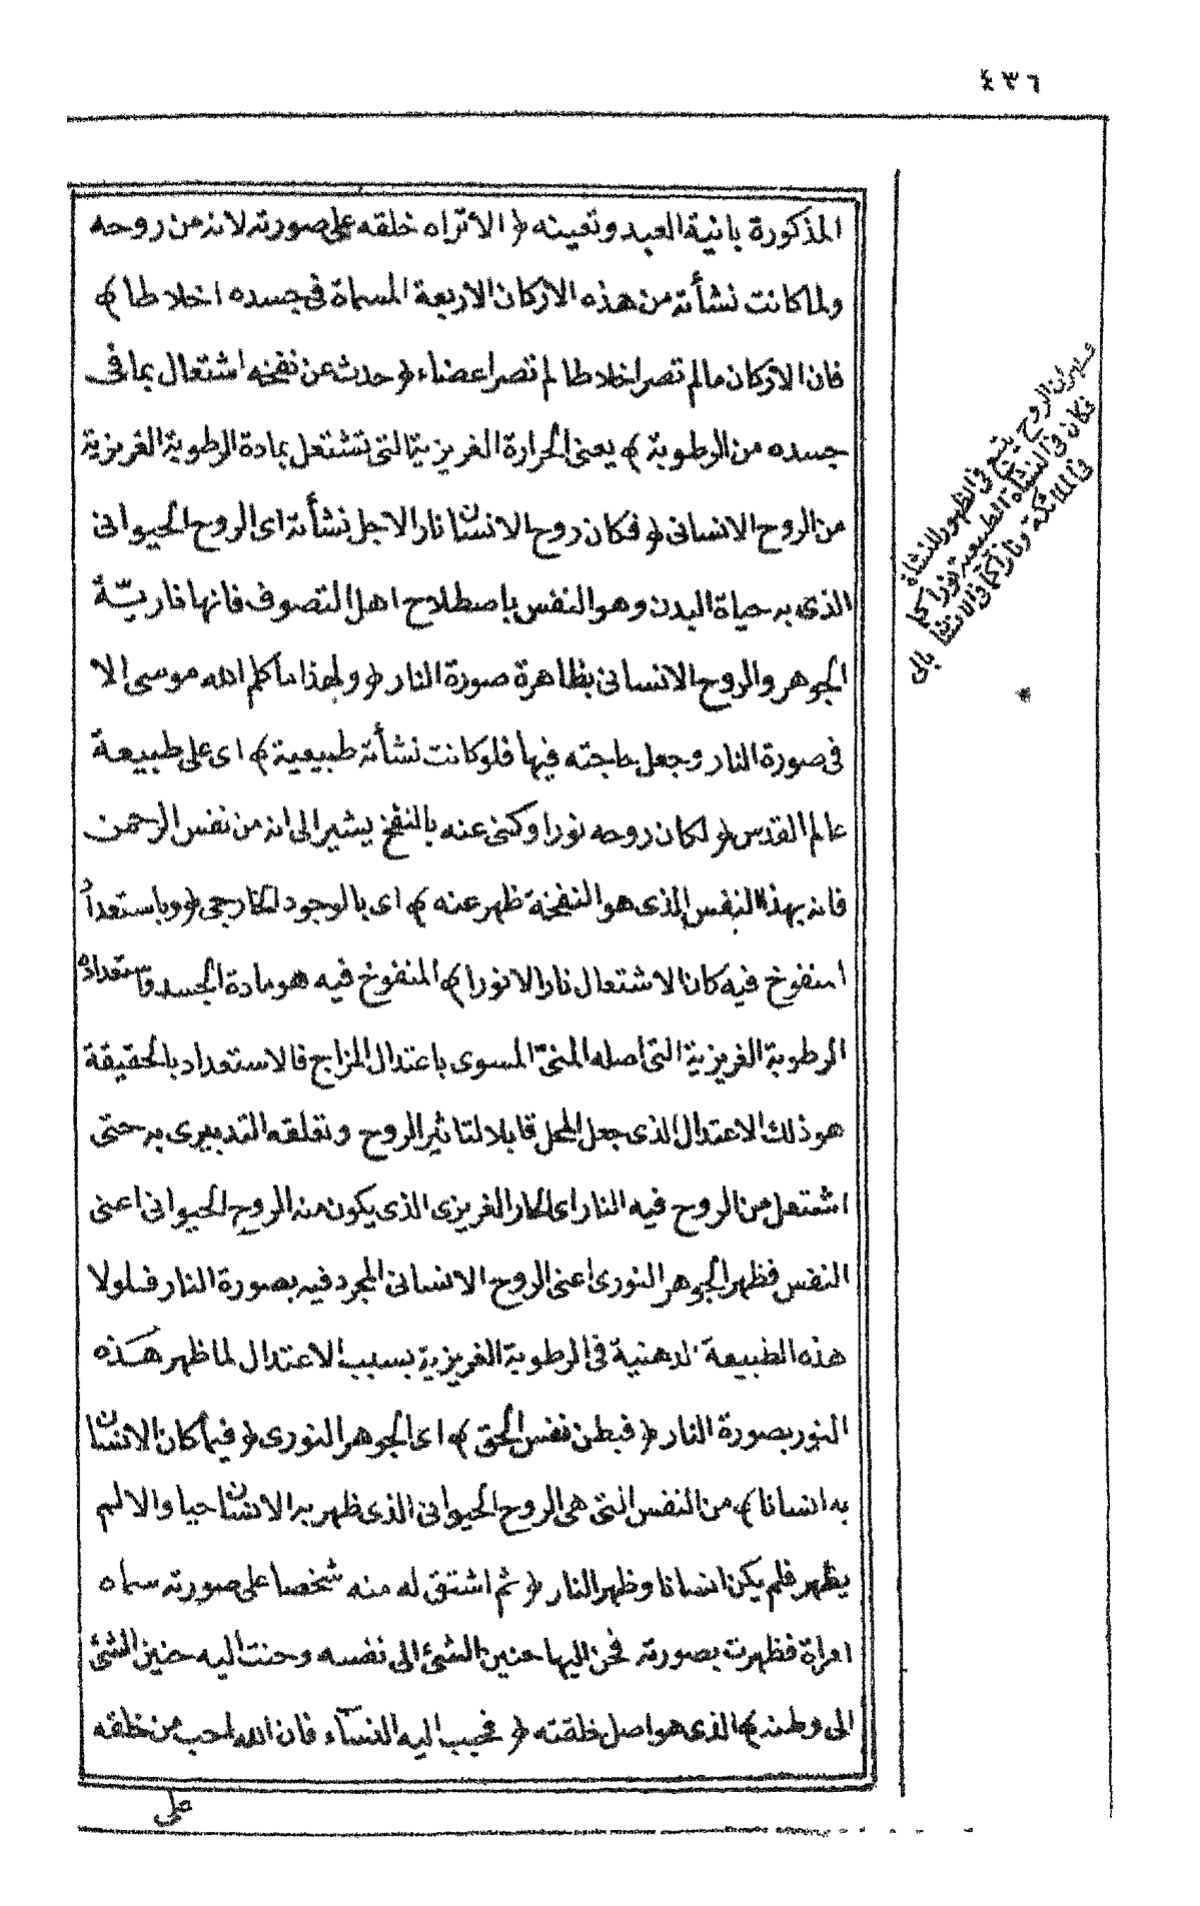 ٤٣٦
المذكورة بانية العبد وتعينه ﴿ الا تراه خلقه على صورته لانه من روحه
ولما كانت نشأته من هذه الاركان الاربعة المسماة فى جسده اخلاطا ﴾
فان الاركان مالم تصر اخلاطا لم تصر اعضاء ﴿ حدث عن نفخه اشتعال بما فى
جسده من الرطوبة ﴾ يعنى الحرارة الغريزية التى تشتعل بمادة الرطوبة الغريزية
من الروح الانسانى ﴿ فكان روح الانسان نارا لاجل نشأته اى الروح الحيوانى
الذى به حياة البدن وهو النفس باصطلاح اهل التصوف فانها نارية
الجوهر والروح الانسانى بظاهرة صورة النار ﴿ ولهذا ما كلم الله موسى الا
فى صورة النار وجعل حاجته فيها فلو كانت نشأته طبيعية ﴾ اى على طبيعة
عالم القدس ﴿ لكان روحه نورا وكنى عنه بالنفخ يشير الى انه من نفس الرحمن
فانه بهذا النفس الذى هو النفخة ظهر عنه ﴾ اى بالوجود الخارجى ﴿ وباستعداد
المنفوخ فيه كان الاشتعال نارا لا نورا ﴾ المنفوخ فيه هو مادة الجسد واستعداده
الرطوبة الغريزية التى اصله المنىّ المسوى باعتدال المزاج فالاستعداد بالحقيقة
هو ذلك الاعتدال الذى جعل المحل قابلا لتاثير الروح وتعلقه التدبيرى به حتى
اشتعل من الروح فيه النار اى الحار الغريزى الذى يكون منه الروح الحيوانى اعنى
النفس فظهر الجوهر النورى اعنى الروح الانسانى المجرد فيه بصورة النار فلولا
هذه الطبيعة الدهنية فى الرطوبة الغريزية بسبب الاعتدال لما ظهر هذه
النور بصورة النار ﴿ فبطن نفس الحق ﴾ اى الجوهر النورى ﴿ فيما كان الانسان
به انسانا ﴾ من النفس التى هى الروح الحيوانى الذى ظهر به الانسان حيا والا لم
يظهر فلم يكن انسانا وظهر النار ﴿ ثم اشتق له منه شخصا على صورته سماه
امراة فظهرت بصورته فحن اليها حنين الشئ الى نفسه وحنت اليه حنين الشئ
الى وطنه ﴾ الذى هو اصل خلقته ﴿ فحبب اليه النساء فان الله احب من خلقه
على
الروح يتبع فى الظهور للنشاة
فكان فى النشأة الطبيعية نورا كما
فى الملائكة ونارا كما فى الانسان بالى